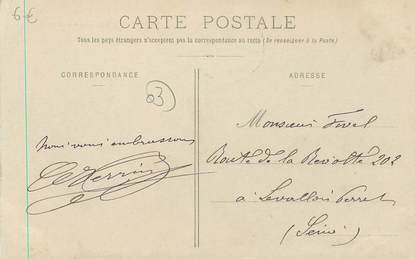 6 €
CARTE POSTALE
Tous les pays étrangers n'acceptent pas la correspondance au recto (Se renseigner à la Poste)
CORRESPONDANCE
ADRESSE
03
Nous vous embrassons
Monsieur
Route de la Revolte 202
à Levallois Perret
(Seine)